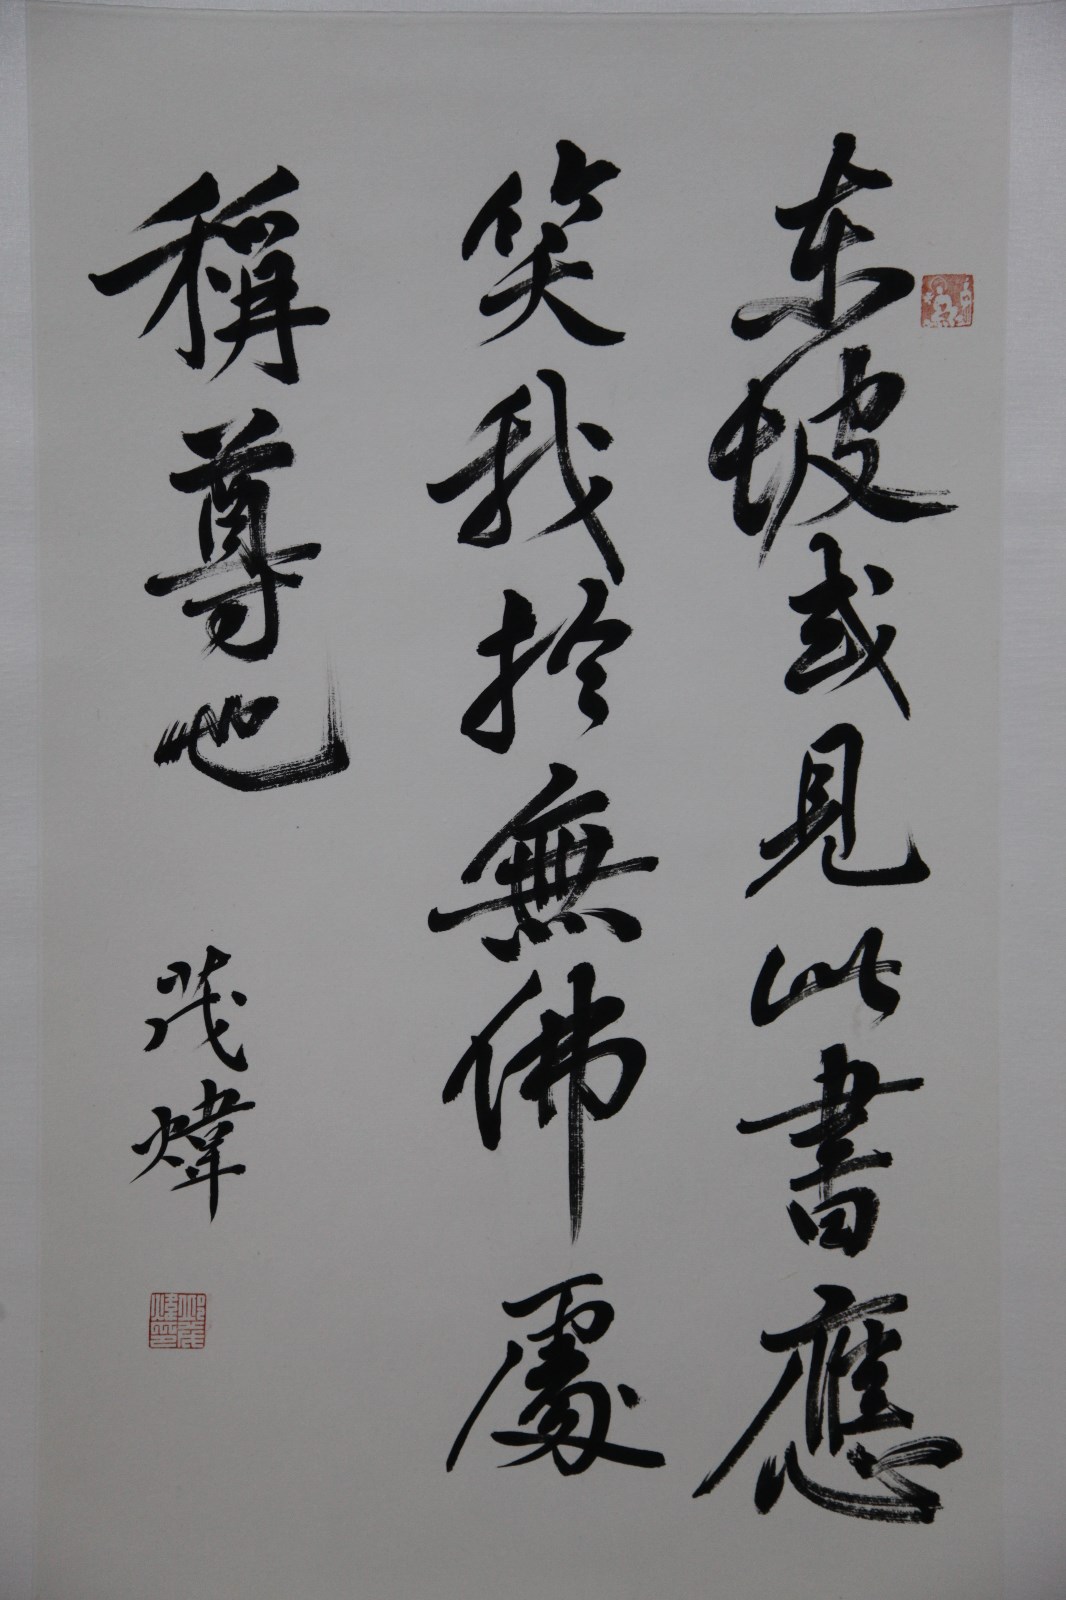 东坡或見此書應
笑我於無佛處
稱尊也
茂煒